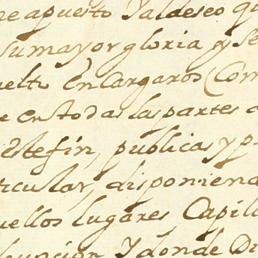 ne apuesto Y al deseo qu
su mayor gloria y se
uelto Encargaros (Com
e en todas las partes
Estefin, publicas y p
ticular, disponiend
uellos lugares Capill
Y donde D